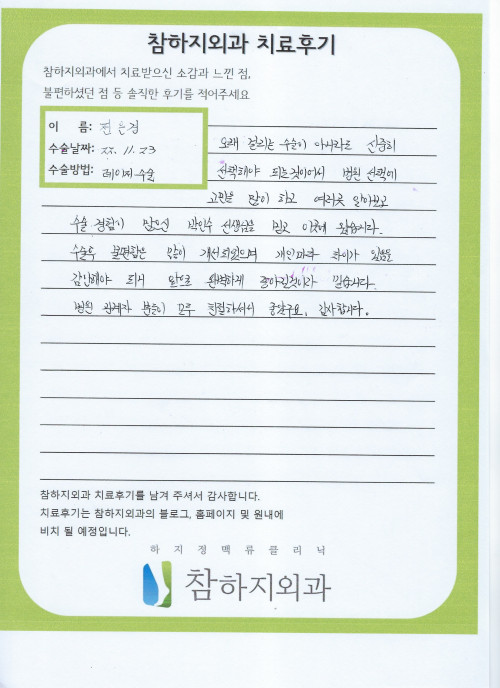 참하지외과 치료후기
참하지외과에서 치료받으신 소감과 느낀 점,
불편하셨던 점 등 솔직한 후기를 적어주세요
이 름: 전은정
수술날짜: 22. 11. 23
수술방법: 레이저수술
오래 걸리는 수술이 아니라도 신중히
선택해야 되는것이어서 병원 선택에
고민을 많이 하고 여러곳 알아보고
수술 경험이 많으신 박인수 선생님을 믿고 이곳에 왔습니다.
수술후 불편함은 많이 개선되었으며 개인마다 차이가 있음을
감안해야 되나 앞으로 완벽하게 좋아질것이라 믿습니다.
병원 관계자 분들이 모두 친절하셔서 좋았구요, 감사합니다.
참하지외과 치료후기를 남겨 주셔서 감사합니다.
치료후기는 참하지외과의 블로그, 홈페이지 및 원내에
비치 될 예정입니다.
하지정맥류클리닉
참하지외과